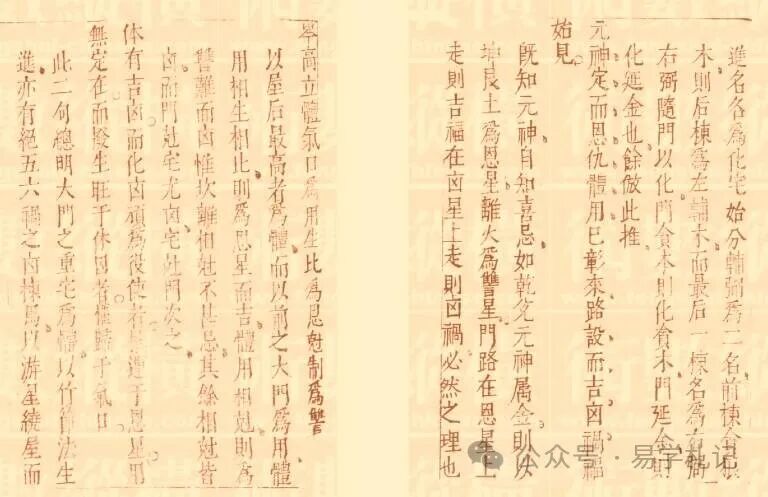 進名各為化宅始分輔弼為二名前棟貪狼
木則后棟為左輔木而最后一棟名為右弼
右弼隨門以化門貪木則化貪木門延金則
化延金也餘倣此推
元神定而恩仇體用已彰來路設而吉凶禍福
始見
既知元神自知喜忌如乾兌元神屬金則以
坤艮土為恩星離火為讐星門路在恩星上
走則吉福在凶星上走則凶禍必然之理也
舉高立體氣口為用生比為恩尅制為讐
以屋后最高者為體而以前之大門為用體
用相生相比則為恩星而吉體用相尅則為
讐離而凶惟坎離相尅不甚忌其餘相尅皆
凶而門尅宅尤凶宅尅門次之
体有吉凶而化凶碩為役使者遭于恩星用
無定在而撥生旺于休囚者惟歸于氣口
此二句總明大門之重宅為體以竹節法生
進亦有絕五六禍之凶棟焉以游星繞屋而
公众号·易学札记